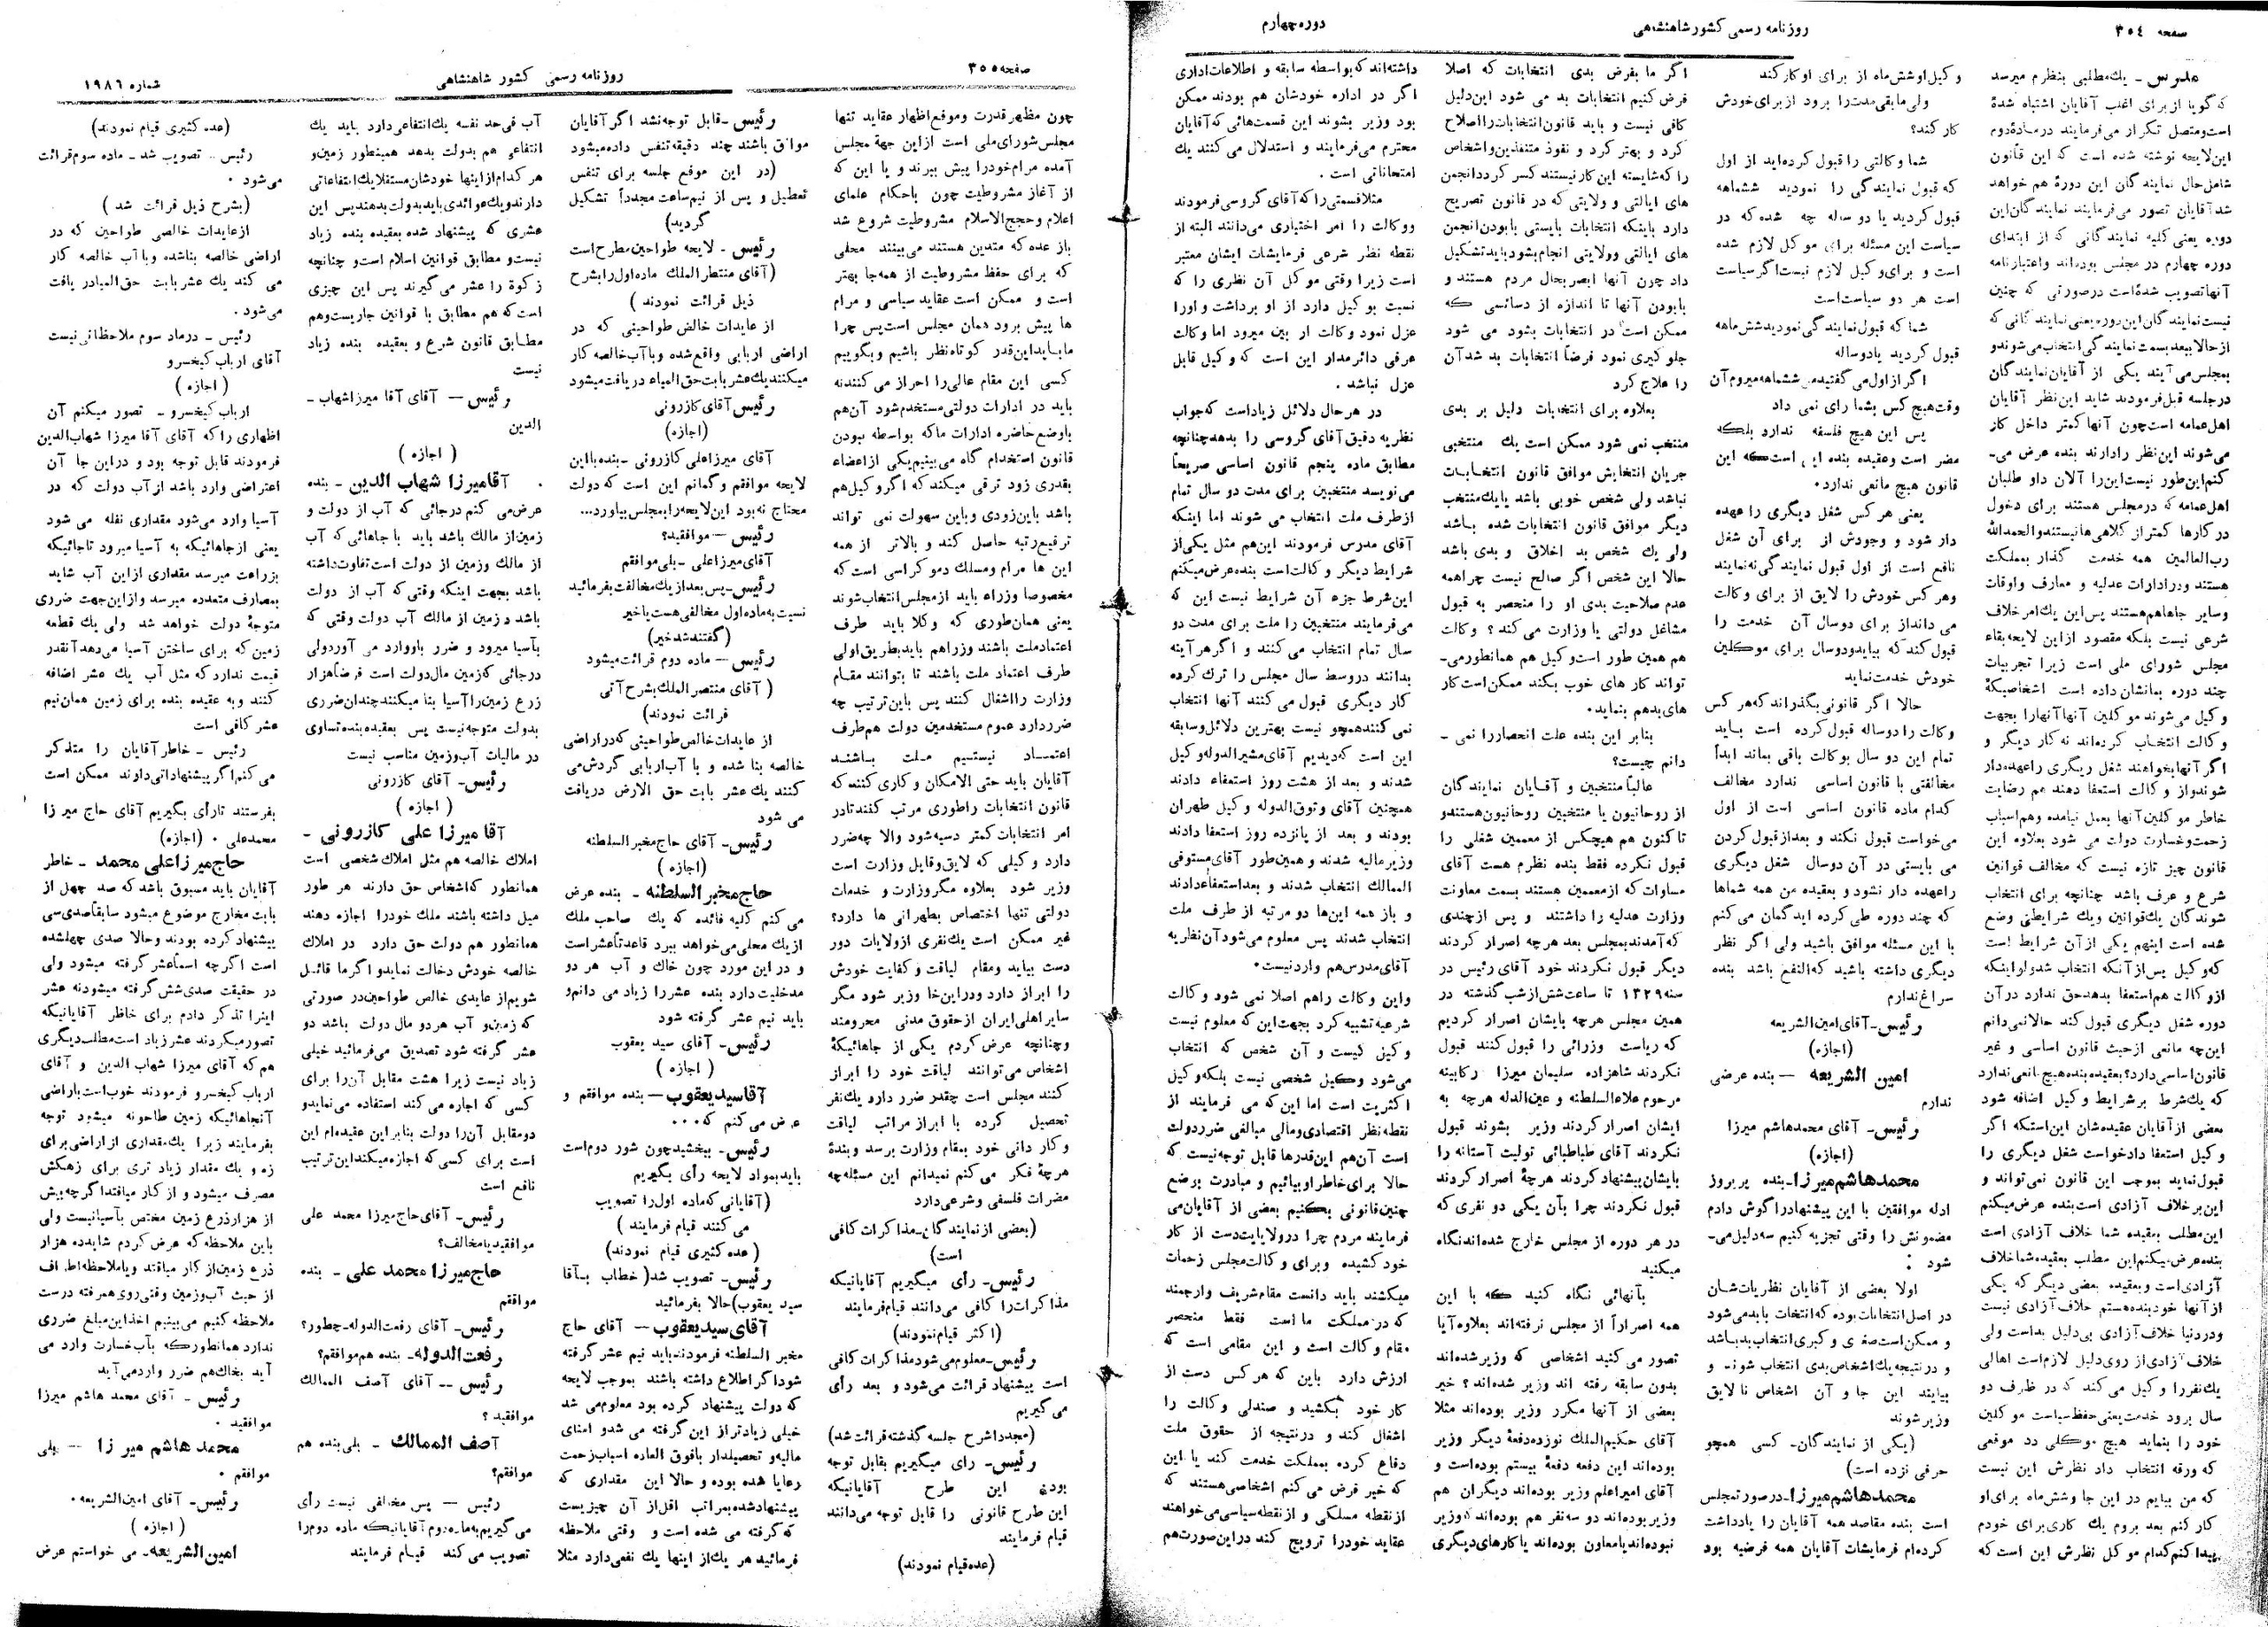 صفحه ۳۵۴
روزنامه رسمی کشور شاهنشاهی
دوره چهارم
مدرس – یک مطلبی بنظرم میرسد
که گویا از برای اغلب آقایان اشتباه شدۀ
است و متصل تکرار می‌فرمایند در مادۀ دوم
این لایحه نوشته شده است که این قانون
شامل حال نمایندگان این دورۀ هم خواهد
شد آقایان تصور می‌فرمایند نمایندگان این
دوره یعنی کلیه نمایندگانی که از ابتدای
دوره چهارم در مجلس بوده‌اند و اعتبارنامه
آنها تصویب شده است در صورتی که چنین
نیست نمایندگان این دوره یعنی نمایندگانی که
از حالا ببعد بسمت نمایندگی انتخاب می‌شوند و
بمجلس می‌آیند یکی از آقایان نمایندگان
در جلسه قبل فرمودند شاید این نظر آقایان
اهل عمامه است چون آنها کمتر داخل کار
می‌شوند این نظر را دارند بنده عرض می‌-
کنم این طور نیست این را الان داو طلبان
اهل عمامه که در مجلس هستند برای دخول
در کارها کمتر از کلاهی‌ها نیستند و الحمدالله
رب‌العالمین همه خدمت گذار بمملکت
هستند و در ادارات عدلیه و معارف و اوقات
و سایر جاها هم هستند پس این یک امر خلاف
شرعی نیست بلکه مقصود از این لایحه بقاء
مجلس شورای ملی است زیرا تجربیات
چند دوره بما نشان داده است اشخاصیکه
وکیل می‌شوند موکلین آنها آنها را بجهت
وکالت انتخاب کرده‌اند نه کار دیگر و
اگر آنها بخواهند شغل دیگری را عهده‌دار
شوند و از وکالت استعفا دهند هم رضایت
خاطر موکلین آنها بعمل نیامده و هم اسباب
زحمت و خسارت دولت می شود بعلاوه این
قانون چیز تازه نیست که مخالف قوانین
شرع و عرف باشد چنانچه برای انتخاب
شوندگان یک قوانین و یک شرایطی وضع
شده است اینهم یکی از آن شرایط است
که وکیل پس از آنکه انتخاب شد و لو اینکه
از وکالت هم استعفا بدهد حق ندارد در آن
دوره شغل دیگری قبول کند حالا نمی‌دانم
این چه مانعی از حیث قانون اساسی و غیر
قانون اساسی دارد؟ بعقیده بنده هیچ مانعی ندارد
که یک شرط بر شرایط وکیل اضافه شود
بعضی از آقایان عقیده‌شان این است که اگر
وکیل استعفا داد خواست شغل دیگری را
قبول نماید بموجب این قانون نمی‌تواند و
این بر خلاف آزادی است بنده عرض میکنم
این مطلب بعقیده شما خلاف آزادی است
بنده عرض میکنم این مطلب بعقیده شما خلاف
آزادی است و بعقیده بعضی دیگر که یکی
از آنها خود بنده هستم خلاف آزادی نیست
و در دنیا خلاف آزادی بی‌دلیل بد است ولی
خلاف آزادی از روی دلیل لازم است اهالی
یک نفر را وکیل می کند که در ظرف دو
سال برود خدمت یعنی حفظ سیاست موکلین
خود را بنماید هیچ موکلی در موقعی
که ورقه انتخاب داد نظرش این نیست
که من بیایم در این جا و شش ماه برای او
کار کنم بعد بروم یک کاری برای خودم
پیدا کنم کدام موکل نظرش این است که
وکیل او شش ماه از برای او کار کند
ولی مابقی مدت را برود از برای خودش
کار کند؟
شما وکالتی را قبول کرده‌اید از اول
که قبول نمایندگی را نمودید ششماهه
قبول کردید یا دو ساله چه شده که در
سیاست این مسئله برای موکل لازم شده
است و برای وکیل لازم نیست اگر سیاست
است هر دو سیاست است
شما که قبول نمایندگی نمودید شش ماهه
قبول کردید یا دو ساله
اگر از اول می گفتید من ششماهه میروم آن
وقت هیچ کس بشما رای نمی داد
پس این هیچ فلسفه ندارد بلکه
مضر است و عقیده بنده این است که این
قانون هیچ مانعی ندارد.
یعنی هر کس شغل دیگری را عهده
دار شود و وجودش از برای آن شغل
نافع است از اول قبول نمایندگی نه نمایند
و هر کس خودش را لایق از برای وکالت
می داند از برای دو سال آن خدمت را
قبول کند که بیاید و دو سال برای موکلین
خودش خدمت نماید
حالا اگر قانونی بگذراند که هر کس
وکالت را دو ساله قبول کرده است باید
تمام این دو سال بوکالت باقی بماند ابداً
مخالفتی با قانون اساسی ندارد مخالف
کدام ماده قانون اساسی است از اول
می‌خواست قبول نکند و بعد از قبول کردن
می بایستی در آن دو سال شغل دیگری
را عهده دار نشود و بعقیده من همه شماها
که چند دوره طی کرده اید گمان می کنم
با این مسئله موافق باشید ولی اگر نظر
دیگری داشته باشید که النفع باشد بنده
سراغ ندارم
رئیس – آقای امین الشریعه
(اجازه)
امین الشریعه – بنده عرضی
ندارم
رئیس – آقای محمد هاشم میرزا
(اجازه)
محمد هاشم میرزا – بنده پریروز
ادله موافقین با این پیشنهاد را گوش دادم
مضمونش را وقتی تجزیه کنیم سه دلیل می‌-
شود :
اولا بعضی از آقایان نظریاتشان
در اصل انتخابات بوده که انتخابات باید می‌شود
و ممکن است صغری و کبری انتخاب بد باشد
و در نتیجه یک اشخاص بدی انتخاب شوند و
بیایند این جا و آن اشخاص نا لایق
وزیر شوند
(یکی از نمایندگان – کسی همچو
حرفی نزده است)
محمد هاشم میرزا – در صورتمجلس
است بنده مقاصد همه آقایان را یادداشت
کرده‌ام فرمایشات آقایان همه فرضیه بود
اگر ما بفرض بدی انتخابات که اصلا
فرض کنیم انتخابات بد می شود این دلیل
کافی نیست و باید قانون انتخابات را اصلاح
کرد و بهتر کرد و نفوذ متنفذین و اشخاص
را که شایسته این کار نیستند کسر کرد و انجمن
های ایالتی و ولایتی که در قانون تصریح
دارد باینکه انتخابات بایستی با بودن انجمن
های ایالتی و ولایتی انجام بشود باید تشکیل
داد چون آنها ابصر بحال مردم هستند و
با بودن آنها تا اندازه از دسائسی که
ممکن است در انتخابات بشود می شود
جلوگیری نمود فرضاً انتخابات بد شد آن
را علاج کرد
بعلاوه برای انتخابات دلیل بر بدی
منتخب نمی شود ممکن است یک منتخبی
جریان انتخابش موافق قانون انتخابات
نباشد ولی شخص خوبی باشد یا یک منتخب
دیگر موافق قانون انتخابات شده باشد
ولی یک شخص بد اخلاق و بدی باشد
حالا این شخص اگر صالح نیست چرا همه
عدم صلاحیت بدی او را منحصر به قبول
مشاغل دولتی یا وزارت می کند ؟ وکالت
هم همین طور است وکیل هم همانطور می‌-
تواند کار های خوب بکند ممکن است کار
های بد هم بنماید.
بنابر این بنده علت انحصار را نمی –
دانم چیست؟
غالباً منتخبین و آقایان نمایندگان
از روحانیون یا منتخبین روحانیون هستند و
تا کنون هم هیچکس از معممین شغلی را
قبول نکرده فقط بنده نظرم هست آقای
مساوات که از معممین هستند بسمت معاونت
وزارت عدلیه را داشتند و پس از چندی
که آمدند بمجلس بعد هر چه اصرار کردند
دیگر قبول نکردند خود آقای رئیس در
سنه ۱۳۲۹ تا ساعت شش از شب گذشته در
همین مجلس هر چه بایشان اصرار کردیم
که ریاست وزرائی را قبول کنند قبول
نکردند شاهزاده سلیمان میرزا در کابینه
مرحوم علاءالسلطنه و عین‌الدله هر چه به
ایشان اصرار کردند وزیر بشوند قبول
نکردند آقای طباطبائی تولیت آستانه را
بایشان پیشنهاد کردند هر چۀ اصرار کردند
قبول نکردند چرا بآن یکی دو نفری که
در هر دوره از مجلس خارج شده‌اند نگاه
میکنید
بآنهائی نگاه کنید که با این
همه اصرار از مجلس نرفته‌اند بعلاوه آیا
تصور می کنید اشخاصی که وزیر شده‌اند
بدون سابقه رفته اند وزیر شده‌اند ؟ خیر
بعضی از آنها مکرر وزیر بوده‌اند مثلا
آقای حکیم‌الملک نوزده دفعۀ دیگر وزیر
بوده‌اند این دفعه دفعۀ بیستم بوده است و
آقای امیر اعلم وزیر بوده‌اند دیگران هم
وزیر بوده‌اند دو سه نفر هم بوده‌اند که وزیر
نبوده‌اند یا معاون بوده‌اند یا کارهای دیگری
داشته‌اند که بواسطه سابقه و اطلاعات اداری
اگر در اداره خودشان هم بودند ممکن
بود وزیر بشوند این قسمت‌هائی که آقایان
محترم می‌فرمایند و استدلال می کنند یک
امتحاناتی است .
مثلا قسمتی را که آقای گروسی فرمودند
و وکالت را امر اختیاری می‌دانند البته از
نقطه نظر شرعی فرمایشات ایشان معتبر
است زیرا وقتی موکل آن نظری را که
نسبت بوکیل دارد از او برداشت و او را
عزل نمود وکالت از بین میرود اما وکالت
عرفی دائر مدار این است که وکیل قابل
عزل نباشد .
در هر حال دلائل زیاد است که جواب
نظریه دقیق آقای گروسی را بدهد چنانچه
مطابق ماده پنجم قانون اساسی صریحاً
می‌نویسد منتخبین برای مدت دو سال تمام
از طرف ملت انتخاب می شوند اما اینکه
آقای مدرس فرمودند این هم مثل یکی از
شرایط دیگر وکالت است بنده عرض میکنم
این شرط جزء آن شرایط نیست این که
می‌فرمایند منتخبین را ملت برای مدت دو
سال تمام انتخاب می کنند و اگر هر آینه
بدانند در وسط سال مجلس را ترک کرده
کار دیگری قبول می کنند آنها انتخاب
نمی کنند همچو نیست بهترین دلائل و سابقه
این است که دیدیم آقای مشیرالدوله وکیل
شدند و بعد از هشت روز استعفاء دادند
همچنین آقای وثوق‌الدوله وکیل طهران
بودند و بعد از پانزده روز استعفا دادند
وزیر مالیه شدند و همین طور آقای مستوفی
الممالک انتخاب شدند و بعد استعفا دادند
و باز همه این‌ها دو مرتبه از طرف ملت
انتخاب شدند پس معلوم می‌شود آن نظریه
آقای مدرس هم وارد نیست.
و این وکالت را هم اصلا نمی شود وکالت
شرعیه تشبیه کرد بجهت این که معلوم نیست
وکیل کیست و آن شخص که انتخاب
می‌شود وکیل شخصی نیست بلکه وکیل
اکثریت است اما این که می فرمایند از
نقطه نظر اقتصادی و مالی مبالغی ضرر دولت
است آن هم این قدرها قابل توجه نیست که
حالا برای خاطر او بیائیم و مبادرت بوضع
چنین قانونی بکنیم بعضی از آقایان می
فرمایند مردم چرا در ولایات دست از کار
خود کشیده و برای وکالت مجلس زحمات
میکشند باید دانست مقام شریف و ارجمند
که در مملکت ما است فقط منحصر
بمقام وکالت است و این مقامی است که
ارزش دارد باین که هر کس دست از
کار خود بکشید و صندلی وکالت را
اشغال کند و در نتیجه از حقوق ملت
دفاع کرده بمملکت خدمت کند یا این
که خیر فرض می کنم اشخاصی هستند که
از نقطه مسلکی و از نقطه سیاسی می‌خواهند
عقاید خود را ترویج کنند در این صورت هم
صفحه ۳۵۵
روزنامه رسمی کشور شاهنشاهی
شماره ۱۹۸۶
چون مظهر قدرت و موقع اظهار عقاید تنها
مجلس شورای ملی است از این جهة مجلس
آمده مرام خود را پیش ببرند و یا این که
از آغاز مشروطیت چون باحکام علمای
اعلام و حجج‌الاسلام مشروطیت شروع شد
باز عده که متدین هستند می‌بینند محلی
که برای حفظ مشروطیت از همه جا بهتر
است و ممکن است عقاید سیاسی و مرام
ها پیش برود همان مجلس است پس چرا
ما باید این قدر کوتاه نظر باشیم و بگوییم
کسی این مقام عالی را احراز می کند نه
باید در ادارات دولتی مستخدم شود آن هم
با وضع حاضره ادارات ما که بواسطه نبودن
قانون استخدام گاه می‌بینیم یکی از اعضاء
بقدری زود ترقی میکند که اگر وکیل هم
باشد باین زودی و باین سهولت نمی تواند
ترفیع رتبه حاصل کند و بالاتر از همه
این ها مرام و مسلک دموکراسی است که
مخصوصا وزراء باید از مجلس انتخاب شوند
یعنی همان طوری که وکلا باید طرف
اعتماد ملت باشند وزرا هم باید بطریق اولی
طرف اعتماد ملت باشند تا بتوانند مقام
وزارت را اشغال کنند پس باین ترتیب چه
ضرر دارد عموم مستخدمین دولت هم طرف
اعتماد نیستیم ملت باشند
آقایان باید حتی الامکان و کاری کنند که
قانون انتخابات را طوری مرتب کنند تا در
امر انتخابات کمتر دسیسه شود والا چه ضرر
دارد وکیلی که لایق و قابل وزارت است
وزیر شود بعلاوه مگر وزارت و خدمات
دولتی تنها اختصاص بطهرانی ها دارد؟
غیر ممکن است یک نفری از ولایات دور
دست بیاید و مقام لیاقت و کفایت خودش
را ابراز دارد و در اینجا وزیر شود مگر
سایر اهلی ایران از حقوق مدنی محرومند
و چنانچه عرض کردم یکی از جاهائیکه
اشخاص می‌توانند لیاقت خود را ابراز
کنند مجلس است چقدر ضرر دارد یک نفر
تحصیل کرده با ابراز مراتب لیاقت
و کار دانی خود بمقام وزارت برسد و بندۀ
هر چۀ فکر می کنم نمیدانم این مسئله چه
مضرات فلسفی و شرعی دارد
(بعضی از نمایندگان – مذاکرات کافی
است)
رئیس – رأی میگیریم آقایانیکه
مذاکرات را کافی می‌دانند قیام فرمایند
(اکثر قیام نمودند)
رئیس – معلوم می‌شود مذاکرات کافی
است پیشنهاد قرائت می‌شود و بعد رأی
می گیریم
(مجدداشرح جلسه گذشته قرائت شد)
رئیس – رای میگیریم بقابل توجه
بودن این طرح آقایانیکه
این طرح قانونی را قابل توجه می‌دانند
قیام فرمایند
(عده قیام نمودند)
رئیس – قابل توجه نشد اگر آقایان
موافق باشند چند دقیقه تنفس داده میشود
(در این موقع جلسه برای تنفس
تعطیل و پس از نیم ساعت مجدداً تشکیل
گردید)
رئیس – لایحه طواحین مطرح است
(آقای منتظر الملک ماده اول را بشرح
ذیل قرائت نمودند )
از عایدات خالص طواحینی که در
اراضی اربابی واقع شده و با آب خالصه کار
میکنند یک عشر بابت حق‌المیاه دریافت میشود
رئیس آقای کازرونی
(اجازه)
آقای میرزا علی کازرونی – بنده با این
لایحه موافقم و گمانم این است که دولت
محتاج نه بود این لایحه را بمجلس بیاورد...
رئیس – موافقید؟
آقای میرزا علی – بلی موافقم
رئیس – پس بعد از یک مخالفت بفرمائید
نسبت به ماده اول مخالفی هست یا خیر
(گفتند شد خیر)
رئیس – ماده دوم قرائت میشود
( آقای منتصر الملک بشرح آتی
قرائت نمودند)
از عایدات خالص طواحینی که در اراضی
خالصه بنا شده و با آب اربابی گردش می
کنند یک عشر بابت حق الارض دریافت
می شود
رئیس – آقای حاج مخبر السلطنه
(اجازه)
حاج مخبر السلطنه – بنده عرض
می کنم کلیه قائده که یک صاحب ملک
از یک محلی می‌خواهد ببرد قاعدتاً عشر است
و در این مورد چون خاک و آب هر دو
مدخلیت دارد بنده عشر را زیاد می دانم و
باید نیم عشر گرفته شود
رئیس – آقای سید یعقوب
( اجازه )
آقا سید یعقوب – بنده موافقم و
عرض می کنم که...
رئیس – ببخشید چون شور دوم است
باید بمواد لایحه رأی بگیریم
(آقایانی که ماده اول را تصویب
می کنند قیام فرمایند )
( عده کثیری قیام نمودند)
رئیس – تصویب شد ( خطاب به آقا
سید یعقوب) حالا بفرمائید
آقای سید یعقوب – آقای حاج
مخبر السلطنه فرمودند باید نیم عشر گرفته
شود اگر اطلاع داشته باشند بموجب لایحه
که دولت پیشنهاد کرده بود معلوم می شد
خیلی زیادتر از این گرفته می شد و امنای
مالیه و تحصیلدار بافوق العاده اسباب زحمت
رعایا شده بوده و حالا این مقداری که
پیشنهاد شده بمراتب اقل از آن چیزیست
که گرفته می شده است و وقتی ملاحظه
فرمائید هر یک از اینها یک نفعی دارد مثلا
آب فی حد نفسه یک انتفاعی دارد باید یک
انتفاعی هم بدولت بدهد همینطور زمین و
هر کدام از اینها خودشان مستقلا یک انتفاعاتی
دارند و یک عوائدی باید بدولت بدهند پس این
عشری که پیشنهاد شده بعقیده بنده زیاد
نیست و مطابق قوانین اسلام است و چنانچه
زکوة را عشر می گیرند پس این چیزی
است که هم مطابق با قوانین جاریست و هم
مطابق قانون شرع و بعقیده بنده زیاد
نیست
رئیس – آقای آقا میرزا شهاب –
الدین
( اجازه )
آقا میرزا شهاب الدین – بنده
عرض می کنم در جائی که آب از دولت و
زمین از مالک باشد باید با جاهائی که آب
از مالک و زمین از دولت است تفاوت داشته
باشد بجهت اینکه وقتی که آب از دولت
باشد و زمین از مالک آب دولت وقتی که
بآسیا میرود و ضرر باو وارد می آورد ولی
در جائی که زمین مال دولت است فرضاً هزار
زرع زمین را آسیا بنا میکنند چندان ضرری
بدولت متوجه نیست پس بعقیده بنده تساوی
در مالیات آب و زمین مناسب نیست
رئیس – آقای کازرونی
( اجازه )
آقا میرزا علی کازرونی –
املاک خالصه هم مثل املاک شخصی است
همانطور که اشخاص حق دارند هر طور
میل داشته باشند ملک خود را اجازه دهند
همانطور هم دولت حق دارد در املاک
خالصه خودش دخالت نماید و اگر ما قائل
شویم از عایدی خالص طواحین در صورتی
که زمین و آب هر دو مال دولت باشد دو
عشر گرفته شود تصدیق می‌فرمائید خیلی
زیاد نیست زیرا هشت مقابل آن را برای
کسی که اجاره می کند استفاده می نماید و
دو مقابل آن را دولت بنابر این عقیده‌ام این
است برای کسی که اجازه میکند این ترتیب
نافع است
رئیس – آقای حاج میرزا محمد علی
موافقید یا مخالف؟
حاج میرزا محمد علی – بنده
موافقم
رئیس – آقای رفعت الدوله – چطور؟
رفعت الدوله – بنده هم موافقم؟
رئیس – آقای آصف الممالک
موافقید ؟
آصف الممالک – بلی بنده هم
موافقم؟
رئیس – پس مخالفی نیست رأی
می گیریم به ماده دوم آقایانیکه ماده دوم را
تصویب می کند قیام فرمایند
(عده کثیری قیام نمودند)
رئیس – تصویب شد – ماده سوم قرائت
می‌شود .
(بشرح ذیل قرائت شد )
از عایدات خالصی طواحین که در
اراضی خالصه بنا شده و با آب خالصه کار
می کند یک عشر بابت حق‌المبادر یافت
می‌شود .
رئیس – در ماد سوم ملاحظاتی نیست
آقای ارباب کیخسرو
( اجازه )
ارباب کیخسرو – تصور میکنم آن
اظهاری را که آقای آقا میرزا شهاب‌الدین
فرمودند قابل توجه بود و در این جا آن
اعتراضی وارد باشد از آب دولت که در
آسیا وارد می‌شود مقداری نفله می شود
یعنی از جاهائیکه به آسیا میرود تا جائیکه
بزراعت میرسد مقداری از این آب شاید
بمصارف متعدده میرسد و از این جهت ضرری
متوجۀ دولت خواهد شد ولی یک قطعه
زمین که برای ساختن آسیا می‌دهد آنقدر
قیمت ندارد که مثل آب یک عشر اضافه
کنند و به عقیده بنده برای زمین همان نیم
عشر کافی است
رئیس – خاطر آقایان را متذکر
می کنم اگر پیشنهاداتی دارند ممکن است
بفرستند تا رأی بگیریم آقای حاج میرزا
محمد علی . (اجازه)
حاج میرزا علی محمد – خاطر
آقایان باید مسبوق باشد که صد چهل از
بابت مخارج موضوع میشود سابقاً صدی سی
پیشنهاد کرده بودند و حالا صدی چهل شده
است اگر چه اسماً عشر گرفته میشود ولی
در حقیقت صدی شش گرفته میشود نه عشر
اینرا تذکر دادم برای خاطر آقایانیکه
تصور میکردند عشر زیاد است مطلب دیگری
هم که آقای میرزا شهاب الدین و آقای
ارباب کیخسرو فرمودند خوب است باراضی
آنجاهائیکه زمین طاحونه میشود توجه
بفرمایند زیرا یک مقداری از اراضی برای
زه و یک مقدار زیاد تری برای زهکش
مصرف میشود و از کار میافتد اگر چه بیش
از هزار ذرع زمین مختص بآسیا نیست ولی
باین ملاحظه که عرض کردم شاید ده هزار
ذرع زمین از کار میافتد و با ملاحظه اطراف
از حیث آب و زمین وقتی روی هم رفته درست
ملاحظه کنیم می‌بینیم اخذ این مبلغ ضرری
ندارد همانطور که بآب خسارت وارد می
آید بخاک هم ضرر وارد می‌آید
رئیس – آقای محمد هاشم میرزا
موافقید .
محمد هاشم میرزا – بلی
موافقم .
رئیس – آقای امین‌الشریعه.
( اجازه )
امین‌الشریعه – می خواستم عرض